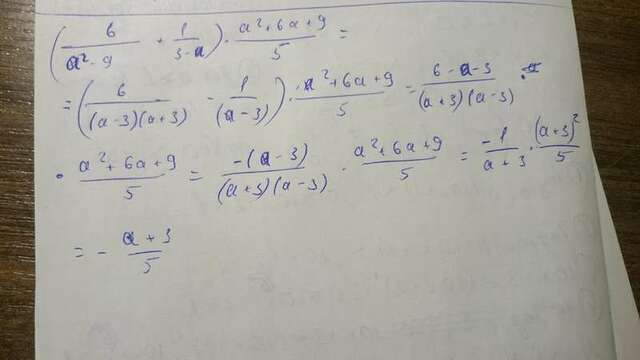 (6/(a²-9) + 1/(3-a)) · (a²+6a+9)/5 =
= (6/((a-3)(a+3)) - 1/(a-3)) · (a²+6a+9)/5 = (6-a-3)/((a+3)(a-3)) ·
· (a²+6a+9)/5 = -(a-3)/((a+3)(a-3)) · (a²+6a+9)/5 = -1/(a+3) · (a+3)²/5
= - (a+3)/5